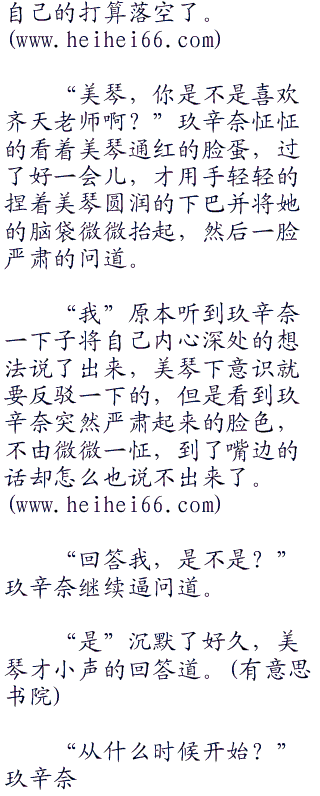 自己的打算落空了。
(www.heihei66.com)
“美琴，你是不是喜欢
齐天老师啊？”玖辛奈怔怔
的看着美琴通红的脸蛋，过
了好一会儿，才用手轻轻的
捏着美琴圆润的下巴并将她
的脑袋微微抬起，然后一脸
严肃的问道。
“我”原本听到玖辛奈
一下子将自己内心深处的想
法说了出来，美琴下意识就
要反驳一下的，但是看到玖
辛奈突然严肃起来的脸色，
不由微微一怔，到了嘴边的
话却怎么也说不出来了。
(www.heihei66.com)
“回答我，是不是？”
玖辛奈继续逼问道。
“是”沉默了好久，美
琴才小声的回答道。(有意思
书院)
“从什么时候开始？”
玖辛奈